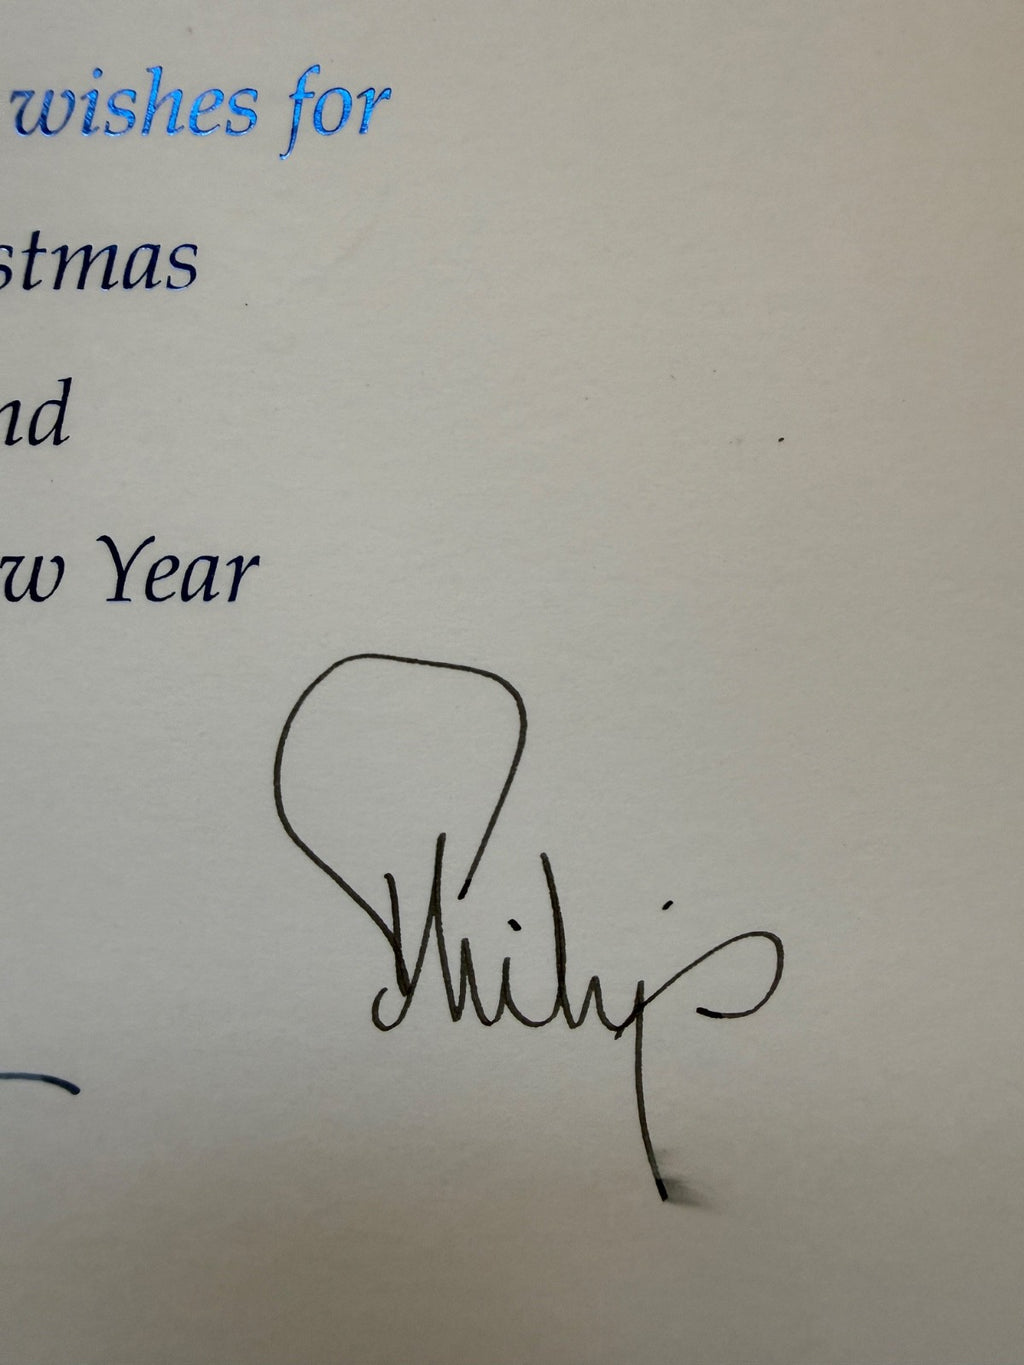 wishes for
stmas
nd
w Year
Philip